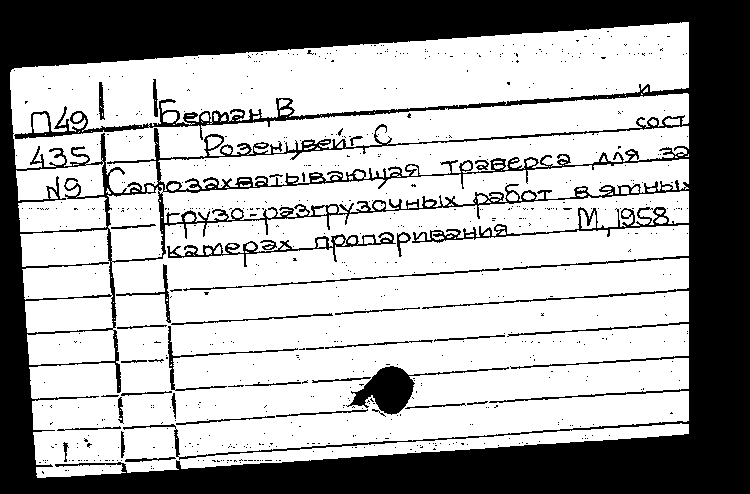 П49 Берман, В и
435 Розенцвейг, С сост
N9 Самозахватывающая траверса для за
грузо-разгрузочных работ в ямных
катерах пропаривания М., 1958.